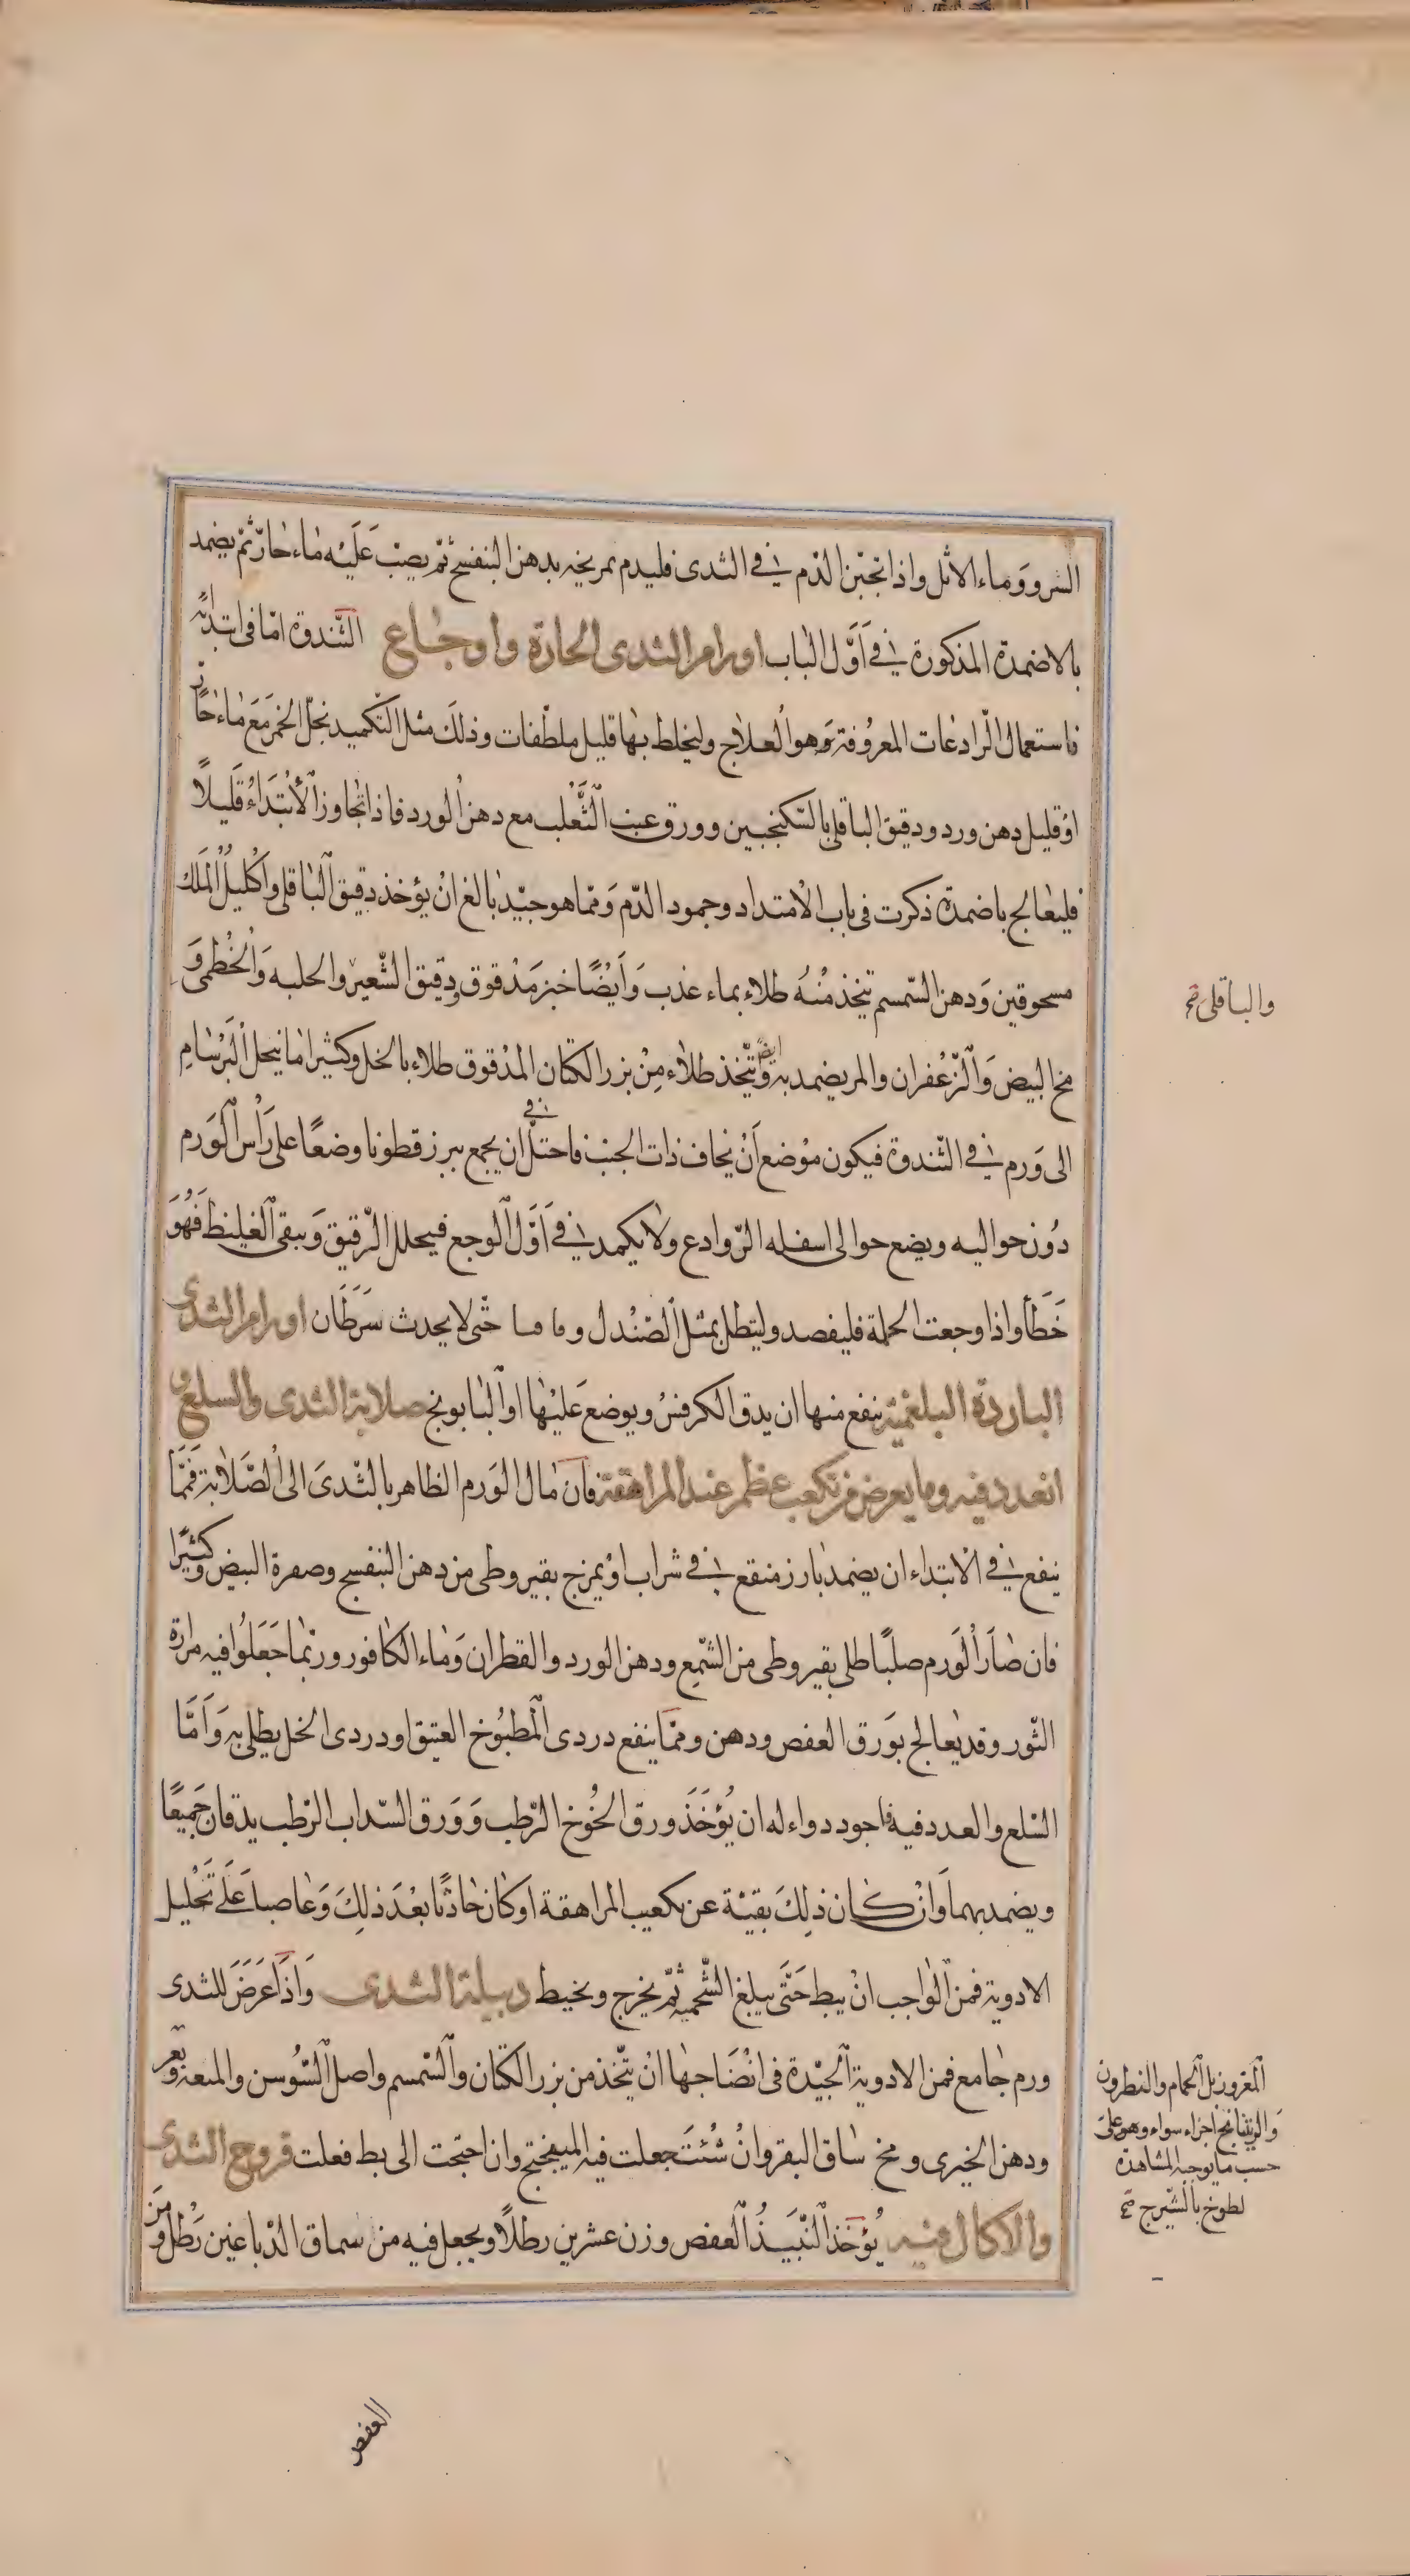 السرو وماء الاثل واذا تجبن الدم في الثدى فليدم تمريخه بدهن البنفسج ثم يصب عليه ماء حار ثم يضمد
بالاضمدة المذكورة في أول الباب اورام الثدى الحارة واوجاع الثندوة اما فى ابتدائه
فاستعمال الرادعات المعروفة وهو العلاج وليخلط بها قليل ملطفات وذلك مثل التكميد بخل الخمر مع ماء حار
او قليل دهن ورد ودقيق الباقلى بالسكنجبين وورق عنب الثعلب مع دهن الورد فاذا تجاوز الأبتداء قليلا
فليعالج باضمدة ذكرت فى باب الامتداد وجمود الدم ومما هو جيد بالغ ان يؤخذ دقيق الباقلى واكليل الملك
مسحوقين ودهن السمسم يتخذ منه طلاء بماء عذب وأيضا خبز مدقوق ودقيق الشعير والحلبه والخطمى و
والباقلى صح
مخ البيض والزعفران والمر يضمد به وايضا يتخذ طلاء من بزر الكتان المدقوق طلاء بالخل وكثيرا ما ينحل البرسام
الى ورم في الثندوة فيكون موضع أن يخاف ذات الجنب فاحتل في ان يجمع ببزرقطونا وضعا على رأس الورم
دون حواليه ويضع حوالى اسفله الروادع ولا يكمد في أول الوجع فيحلل الرقيق ويبقى الغليظ فهو
خطأ واذا وجعت الحلمة فليفصد وليتطل بمثل الصندل وماميا حتى لا يحدث سرطان اورام الثدى
الباردة البلغمية ينفع منها ان يدق الكرفس ويوضع عليها او البابونج صلابة الثدى والسلع و
الغدد فيه وما يعرض من تكعب عظم عند المراهقة فان مال الورم الظاهر بالثدى الى الصلابة فمما
ينفع في الابتداء ان يضمد بارز منقع في شراب او يمزج بقيروطى من دهن البنفسج وصفرة البيض وكثيرا
فان صار الورم صلبا طلى بقيروطى من الشمع ودهن الورد والقطران وماء الكافور وربما جعلوا فيه مرارة
الثور وقد يعالج بورق العفص ودهن ومما ينفع دردى المطبوخ العتيق او دردى الخل يطلى به وأما
السلع والعدد فيه فاجود دواء له ان يؤخذ ورق الخوخ الرطب وورق السداب الرطب يدقان جميعا
ويضمد بهما وان كان ذلك بقية عن تكعيب المراهقة او كان حادثا بعد ذلك وعاصيا على تحليل
الادوية فمن الواجب ان يبط حتى يبلغ الشحمية ثم يخرج ويخيط دبيلة الثدى واذا عرض للثدى
ورم جامع فمن الادوية الجيدة فى انضاجها ان يتخذ من بزر الكتان والسمسم واصل السوسن والميعة وبعر
المعز وزبل الحمام والنطرون
والريتيانج اجزاء سواء وهو على
حسب ما يوجبه المشاهدة
لطوخ بالشيرج صح
ودهن الخيرى ومخ ساق البقر وان شئت جعلت فيه الميبفختج وان احتجت الى بط فعلت قروح الثدى
والاكال فيه يؤخذ النبيذ العفص وزن عشرين رطلا ويجعل فيه من سماق الدباغين رطل ومن
العفص